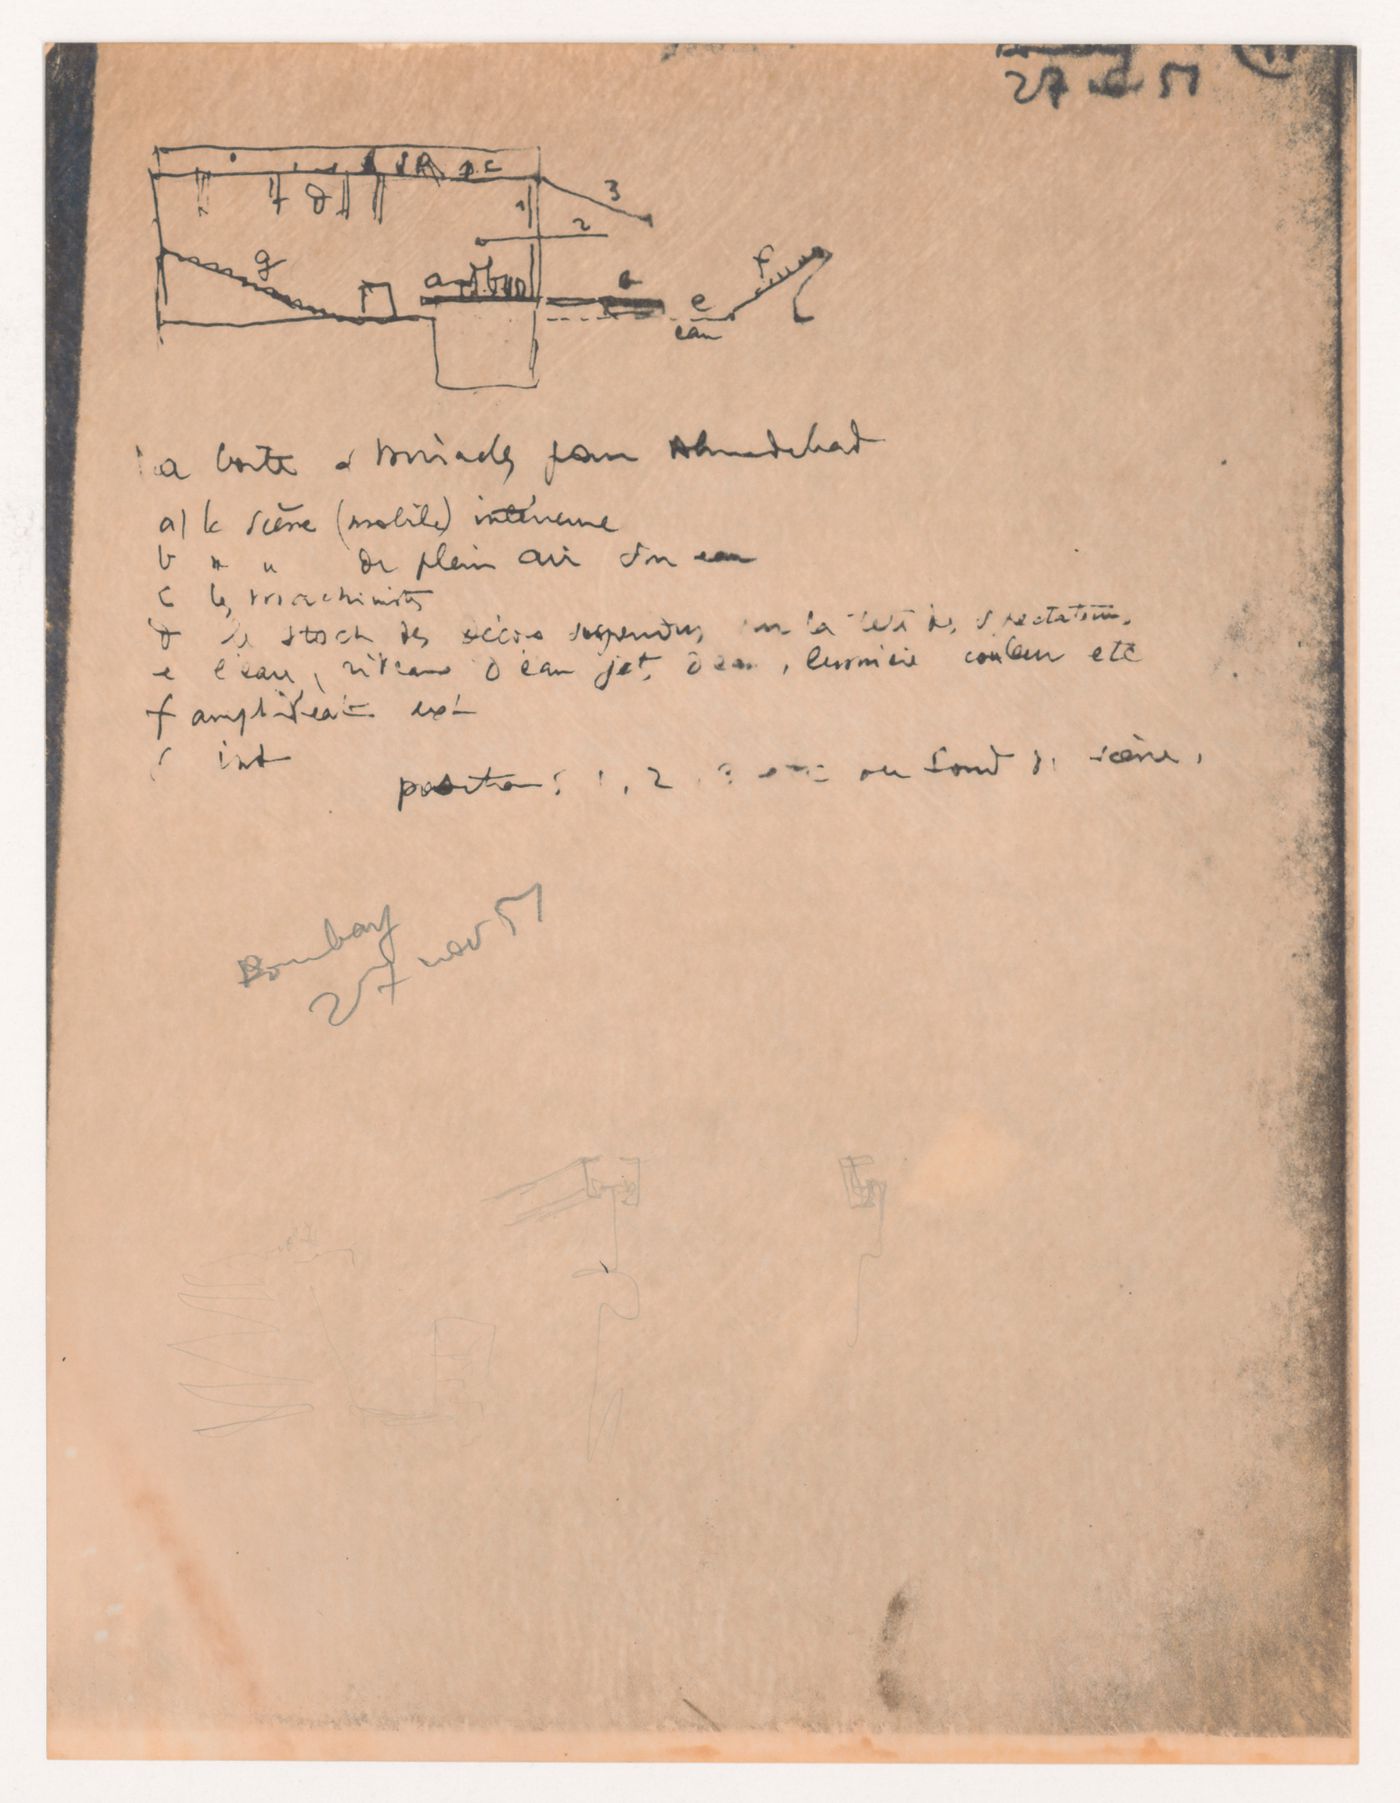 27 51
3
1
2
d
g
a
b
e
f
eau
la boite à miracles pour Ahmedabad
a) la scène (mobile) intérieure
b " " de plein air sur eau
c les machinistes
d le stock des décors suspendus sur la tête des spectateurs
e l'eau, rideau d'eau jet d'eau, lumière couleur etc
f amphitheat ext
int
position: 1, 2 3 ou fond de scène
Bombay
27 nov 51